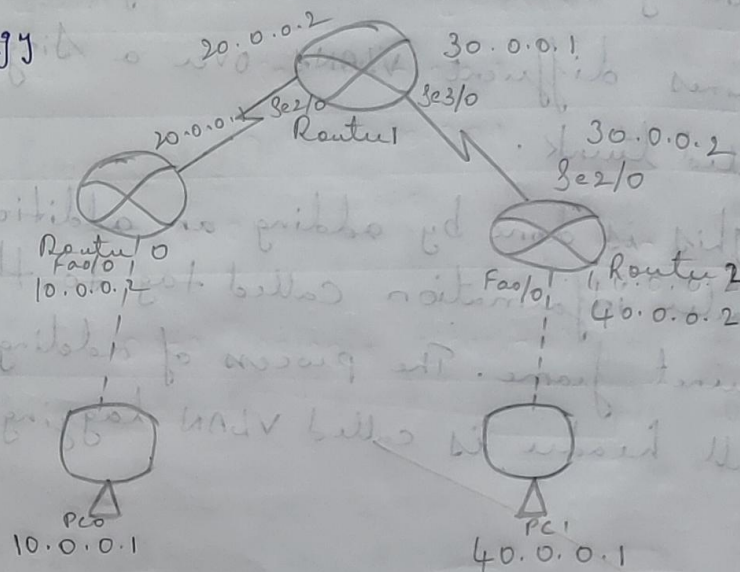 gy
20.0.0.2
30.0.0.1
20.0.0.1
Se2/0
Se3/0
Router1
30.0.0.2
Se2/0
Router 0
Fa0/0
10.0.0.2
Fa0/0
Router 2
40.0.0.2
PC0
10.0.0.1
PC1
40.0.0.1